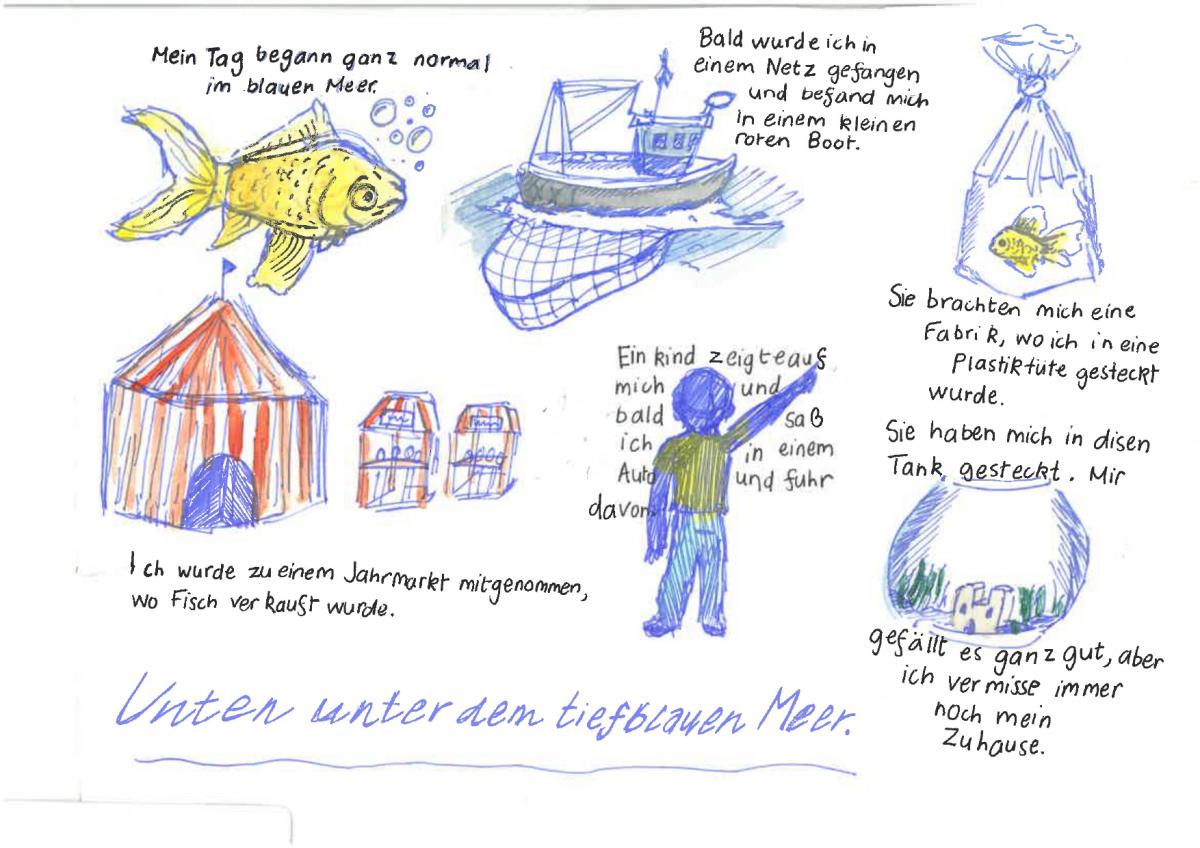 Mein Tag begann ganz normal
im blauen Meer.
Bald wurde ich in
einem Netz gefangen
und befand mich
in einem kleinen
roten Boot.
Sie brachten mich eine
Fabrik, wo ich in eine
Plastiktüte gesteckt
wurde.
Ich wurde zu einem Jahrmarkt mitgenommen,
wo Fisch verkauft wurde.
Ein kind zeigte auf
mich und
bald saß
ich in einem
Auto und fuhr
davon.
Sie haben mich in disen
Tank gesteckt. Mir
gefällt es ganz gut, aber
ich vermisse immer
noch mein
Zuhause.
Unten unter dem tiefblauen Meer.